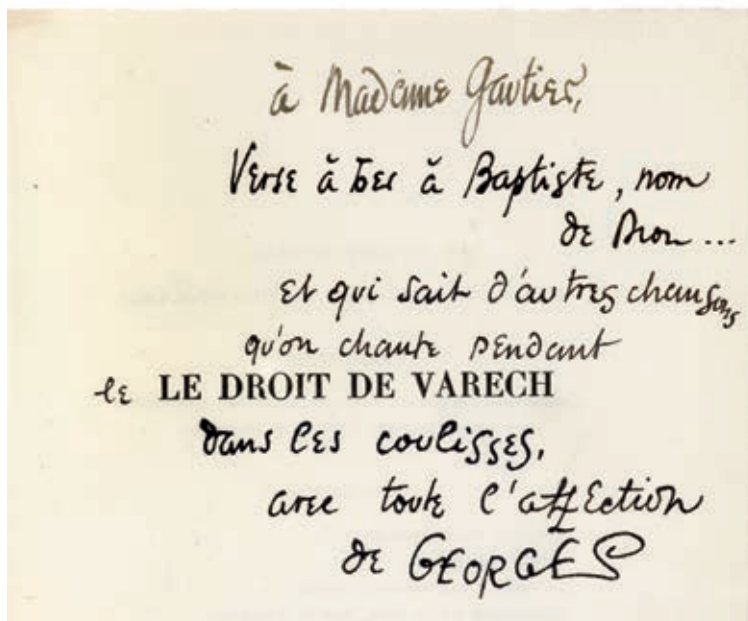 à Madame Gautier,
Verse à à Baptiste, nom
de Dion...
et qui sait d'autres chansons
qu'on chante pendant
le LE DROIT DE VARECH
dans les coulisses,
avec toute l'affection
de GEORGES